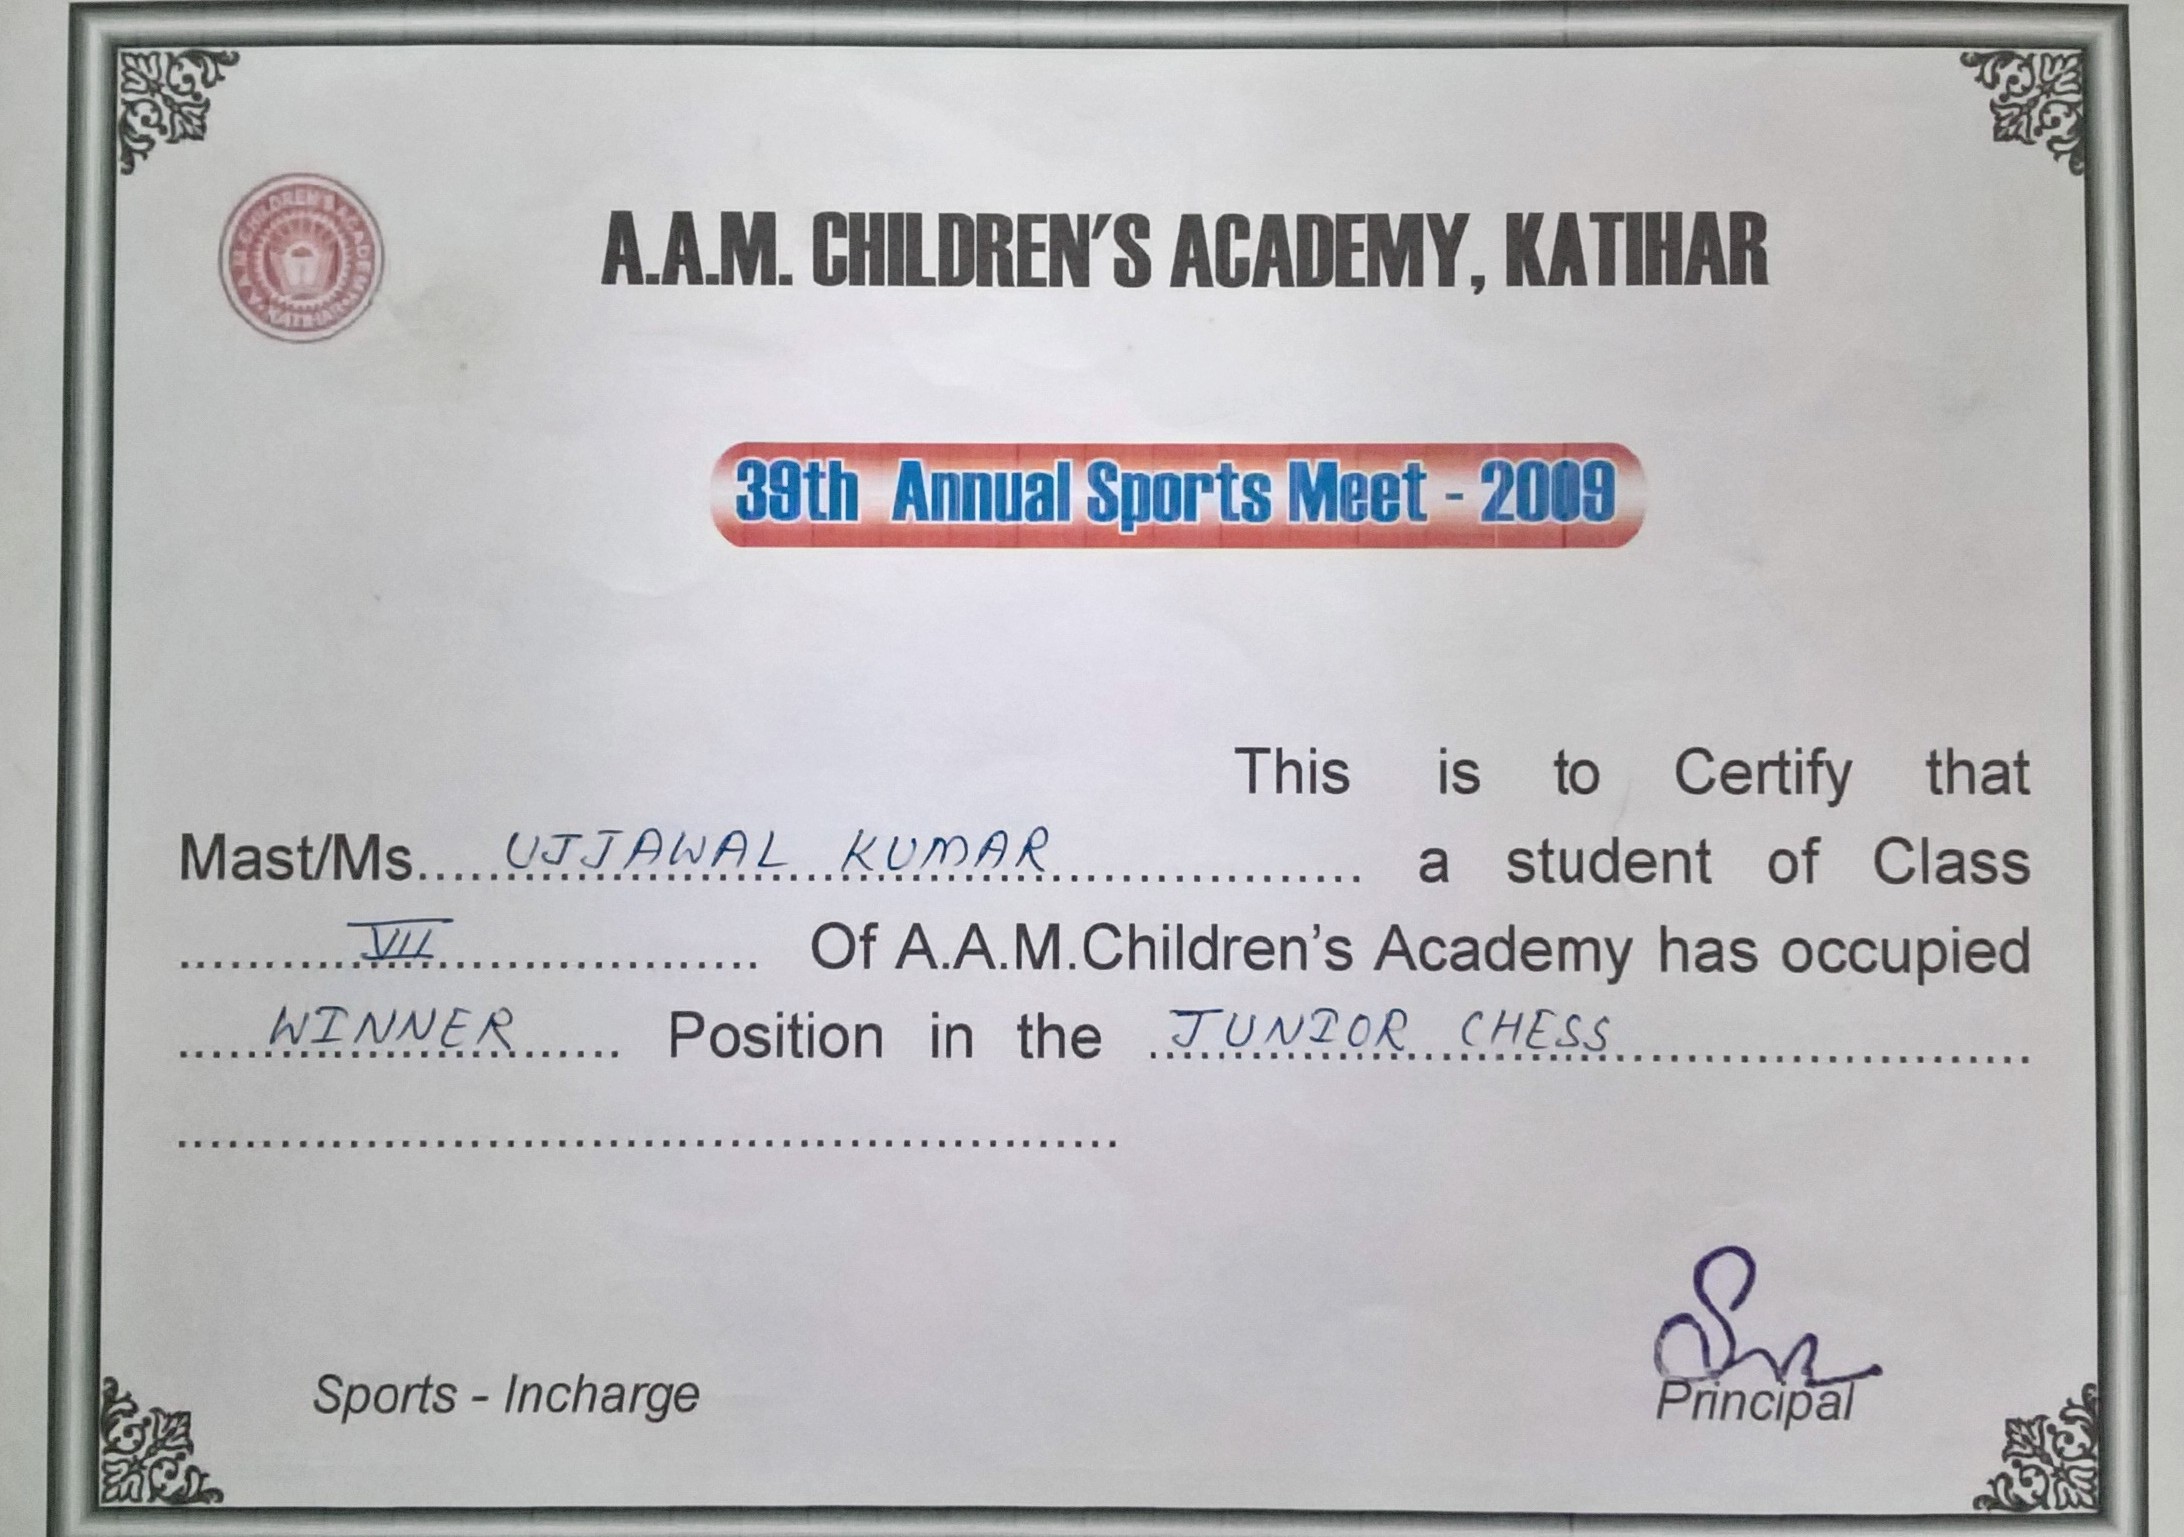 A.A.M. CHILDREN'S ACADEMY
KATIHAR
A.A.M. CHILDREN'S ACADEMY, KATIHAR
39th Annual Sports Meet - 2009
This is to Certify that
Mast/Ms.... UJJAWAL KUMAR .... a student of Class
.... VII .... Of A.A.M.Children's Academy has occupied
.... WINNER .... Position in the .... JUNIOR CHESS ....
Sports - Incharge
Principal